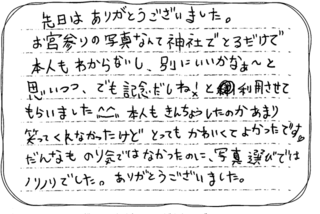 先日は ありがとうございました。
お宮参りの写真なんて神社でとるだけで
本人もわからないし、別にいいかなぁ〜と
思いつつ、でも記念だしね♪と 利用させて
もらいました^^ 本人もきんちょうしたのかあまり
笑ってくれなかったけど とっても かわいくてよかったです。
だんなも のり気ではなかったのに、写真選びでは
ノリノリでした。ありがとうございました。